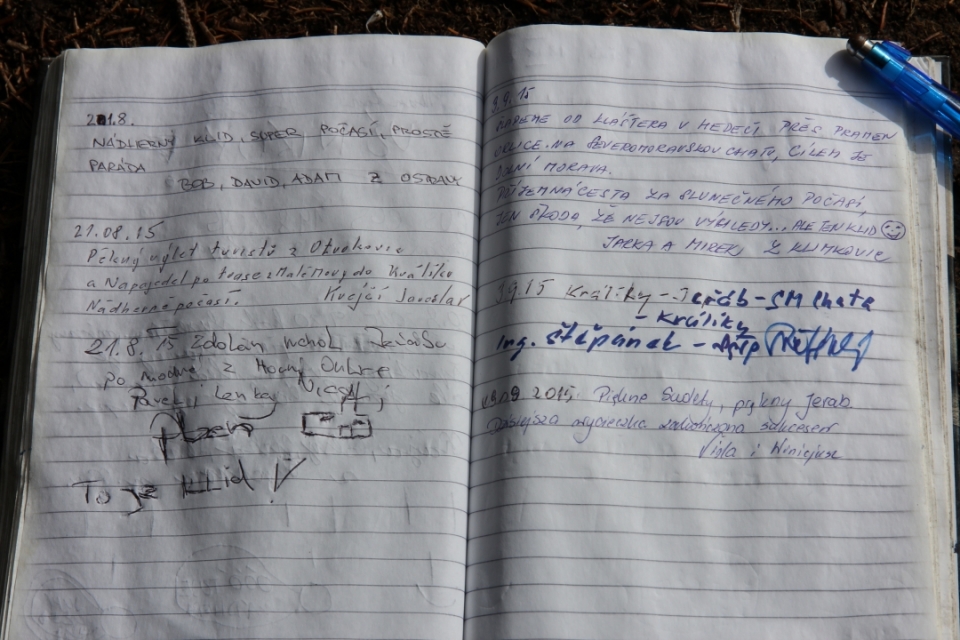 21.8.
NÁDHERNÝ KLID, SUPER POČASÍ, PROSTĚ
PARÁDA
BOB, DAVID, ADAM Z OSTRAVY
21.08.15
Pěkný výlet turistů z Otrokovic
a Napajedel po trase z Malé Moravy do Králík
Nádherné počasí. Krejčí Jaroslav
21.8.15 Zdolán vrchol Jeřábu
po modré z Horní
Plzeň
To je KLID!
9.9.15
OD KLÁŠTERA V HEDEČI PŘES PRAMEN
ORLICE NA SEVEROMORAVSKOU CHATU, CÍLEM JE
DOLNÍ MORAVA.
PŘÍJEMNÁ CESTA ZA SLUNEČNÉHO POČASÍ
JEN ŠKODA, ŽE NEJSOU VÝHLEDY... ALE TEN KLID ☺
JARKA A MIREK Z KLIMKOVIC
9.9.15 Králíky - Jeřáb - SM chata
- Králíky
Ing. Štěpánek -
09 2015. Piękne Sudety, piękny Jerab
Dzisiejsza wycieczka zakończona sukcesem
i